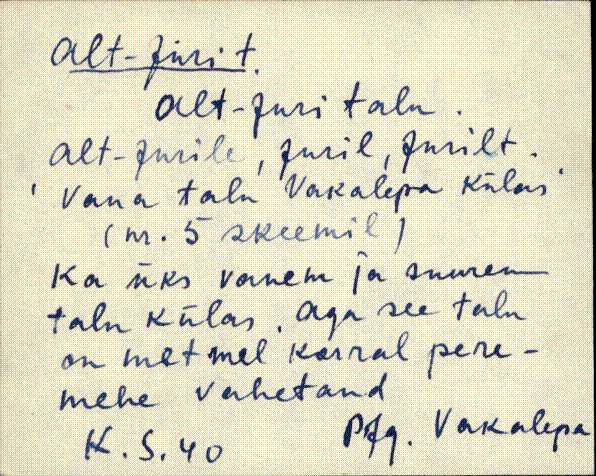 Alt-Jüri t.
Alt-Juri talu.
Alt-Jurile, Juril, Jurilt.
' Vana talu Vakalepa külas '
(nr. 5 skeemil)
Ka üks vanem ja suurem
talu külas, aga see talu
on mitmel korral pere-
mehe vahetand
K. S. 40 Pjg. Vakalepa